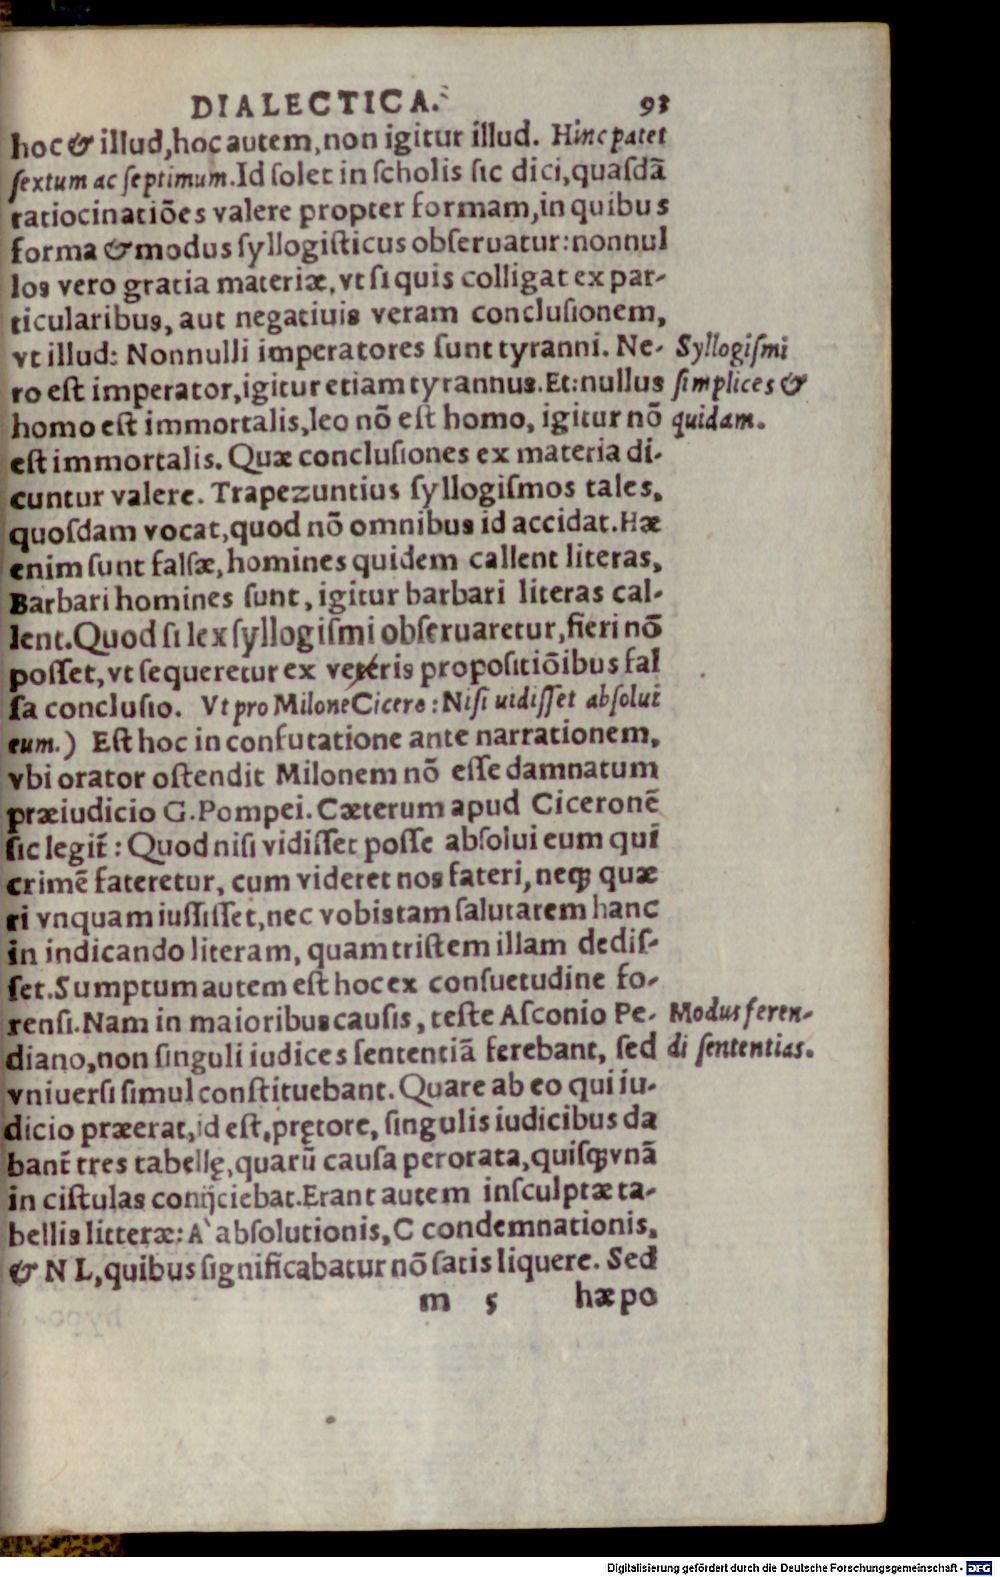 DIALECTICA. 93
hoc & illud, hoc autem, non igitur illud. Hinc patet
ſextum ac ſeptimum. Id ſolet in ſcholis ſic dici, quaſdā
ratiocinatiōes valere propter formam, in quibus
forma & modus ſyllogiſticus obſeruatur: nonnul
los vero gratia materiæ, vt ſi quis colligat ex par-
ticularibus, aut negatiuis veram concluſionem,
vt illud: Nonnulli imperatores ſunt tyranni. Ne-
Syllogiſmi
ro eſt imperator, igitur etiam tyrannus. Et: nullus
ſimplices &
homo eſt immortalis, leo nō eſt homo, igitur nō
quidam.
eſt immortalis. Quæ concluſiones ex materia di-
cuntur valere. Trapezuntius ſyllogiſmos tales,
quoſdam vocat, quod nō omnibus id accidat. Hæ
enim ſunt falſæ, homines quidem callent literas,
Barbari homines ſunt, igitur barbari literas cal-
lent. Quod ſi lex ſyllogiſmi obſeruaretur, fieri nō
poſſet, vt ſequeretur ex veris propoſitiōibus fal
ſa concluſio. Vt pro Milone Cicero: Niſi uidiſſet abſolui
eum.) Eſt hoc in confutatione ante narrationem,
vbi orator oſtendit Milonem nō eſſe damnatum
præiudicio G. Pompei. Cæterum apud Ciceronē
ſic legit̃: Quod niſi vidiſſet poſſe abſolui eum qui
crimē fateretur, cum videret nos fateri, neq; quæ
ri vnquam iuſſiſſet, nec vobis tam ſalutarem hanc
in indicando literam, quam triſtem illam dediſ-
ſet. Sumptum autem eſt hoc ex conſuetudine fo-
renſi. Nam in maioribus cauſis, teſte Aſconio Pe-
Modus feren-
diano, non ſinguli iudices ſententiā ferebant, ſed
di ſententias.
vniuerſi ſimul conſtituebant. Quare ab eo qui iu-
dicio præerat, id eſt, prętore, ſingulis iudicibus da
bant̃ tres tabellę, quarū cauſa perorata, quiſq; vnā
in ciſtulas conijciebat. Erant autem inſculptæ ta-
bellis litteræ: A abſolutionis, C condemnationis,
& N L, quibus ſignificabatur nō ſatis liquere. Sed
m 5 hæ po
Digitalisierung gefördert durch die Deutsche Forschungsgemeinschaft - DFG